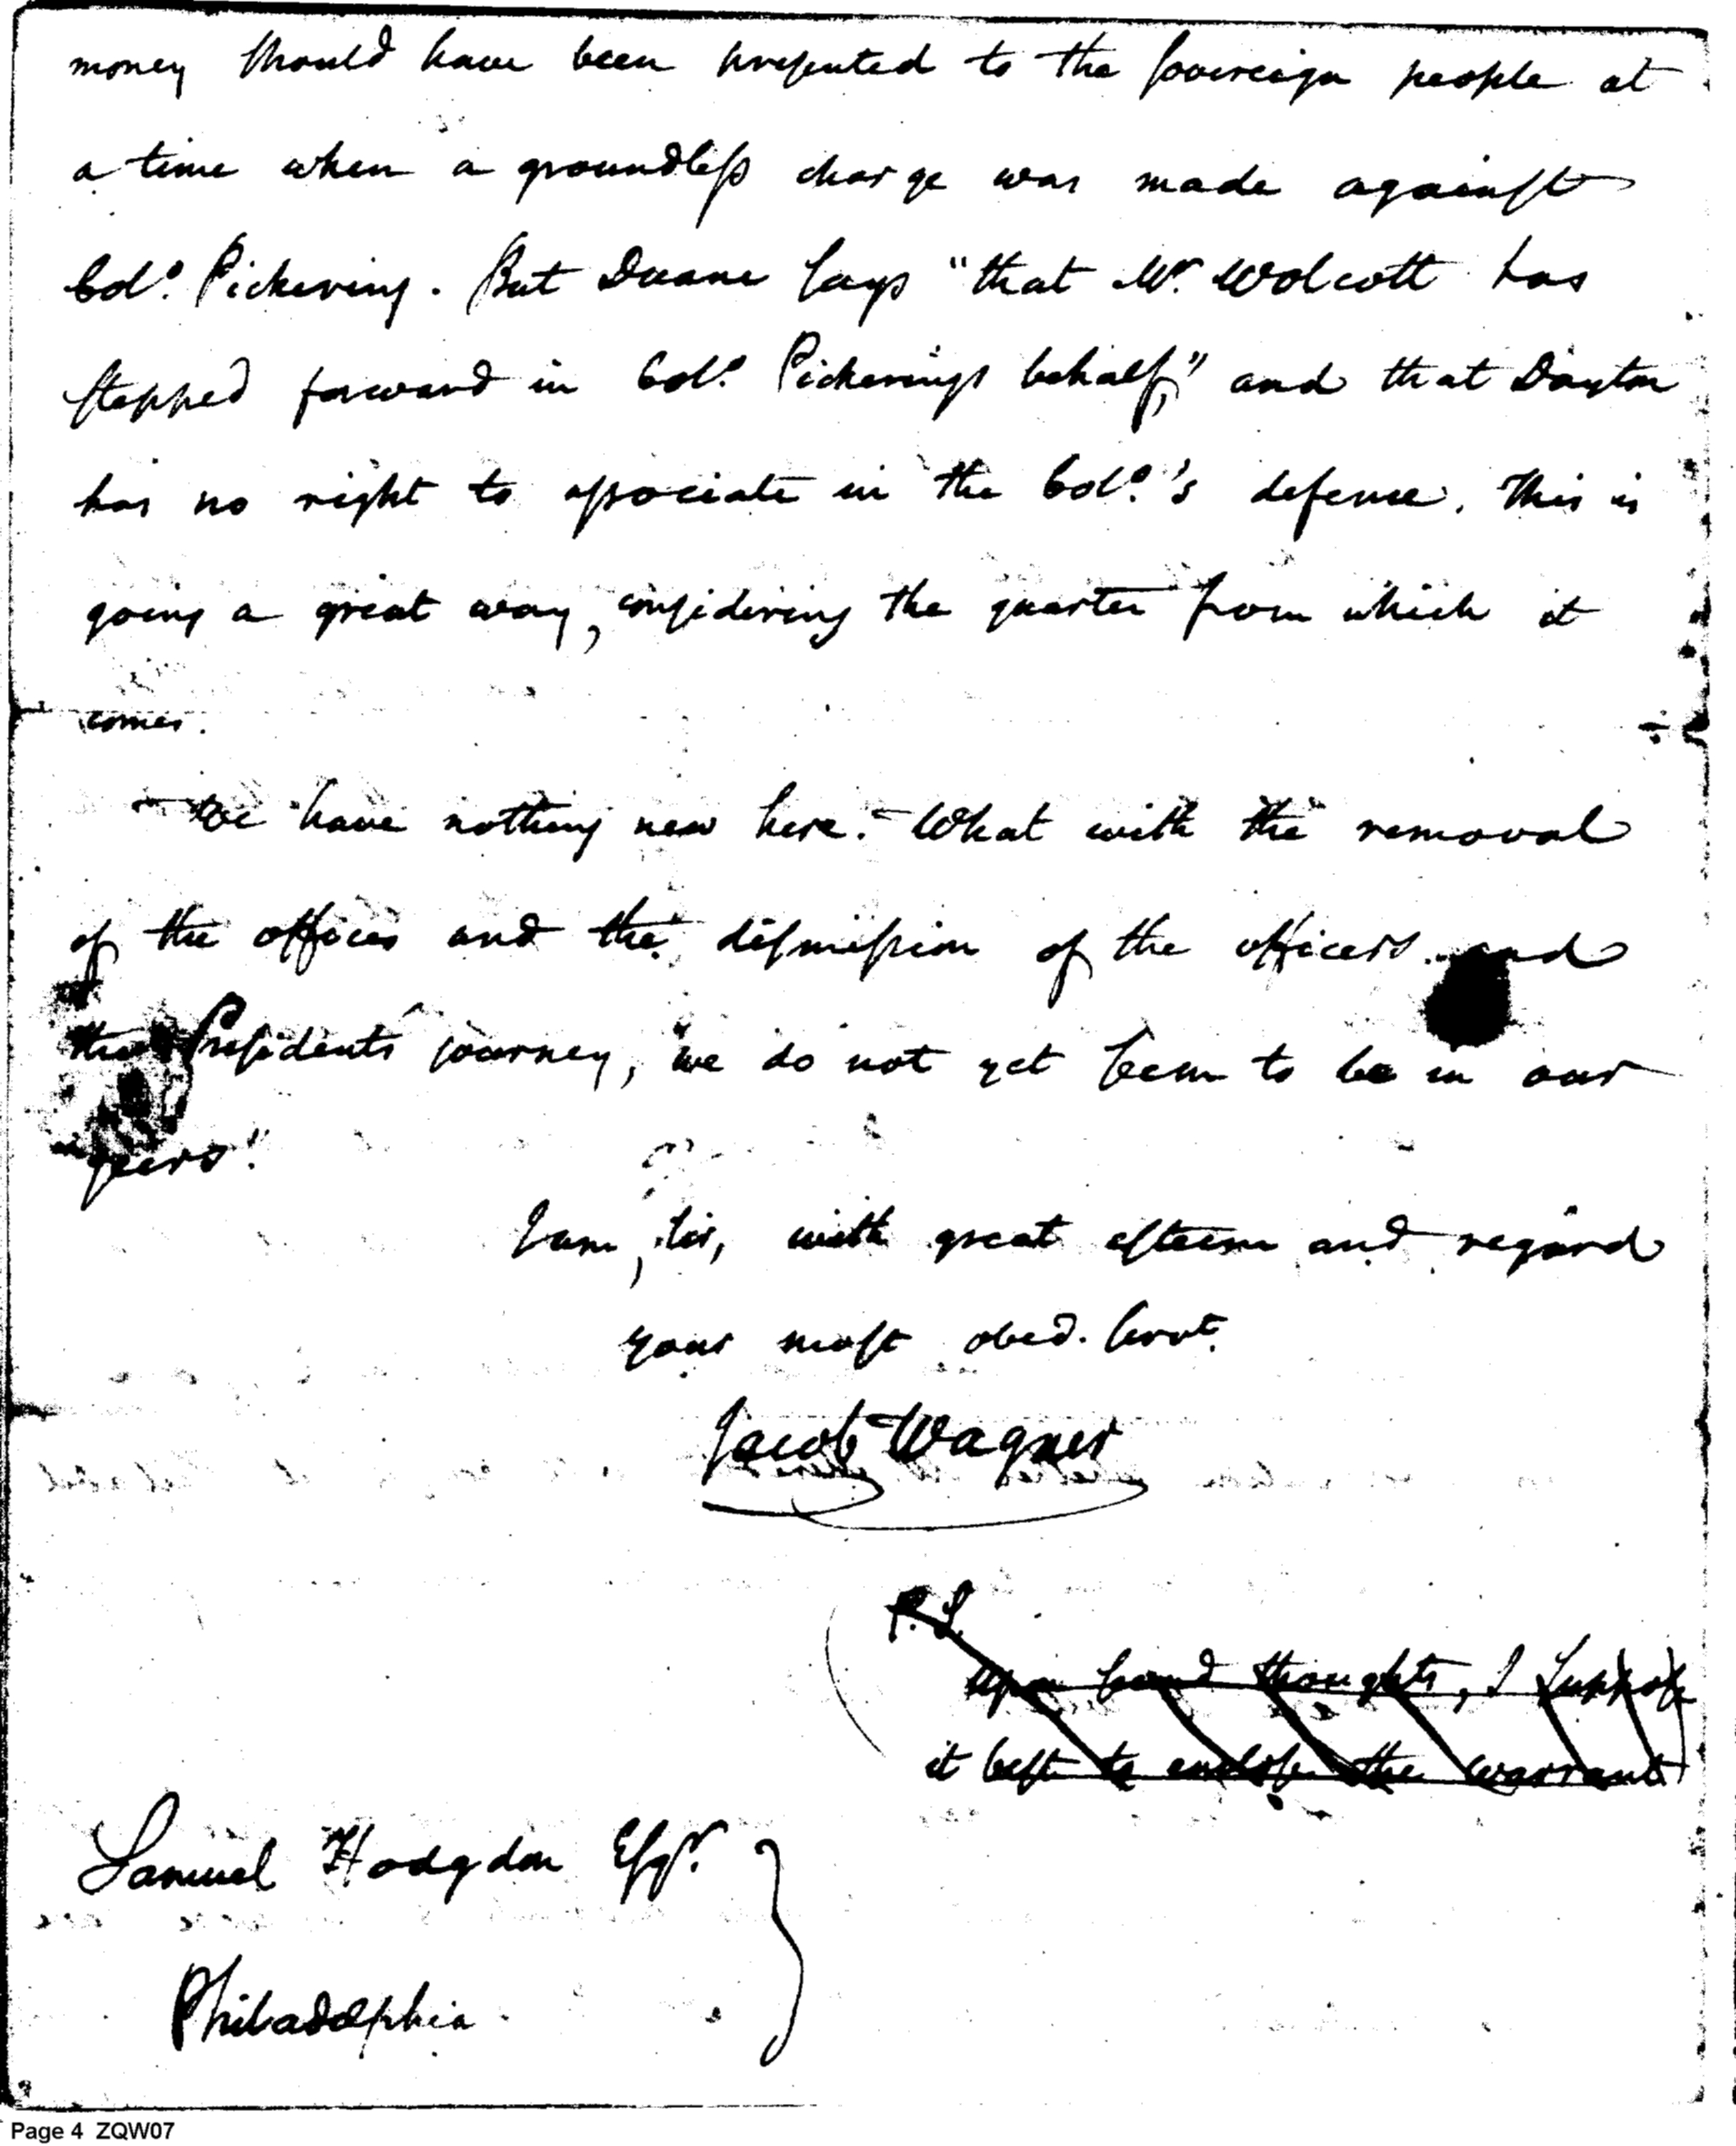 money should have been presented to the sovereign people at
a time when a groundless charge was made against
Colo. Pickering. But Duane says "that Mr. Wolcott has
stepped forward in Colo. Pickerings behalf," and that Dayton
has no right to associate in the Colo.'s defence. This is
going a great way, considering the quarter from which it
comes.
We have nothing new here. - What with the removal
of the offices and the dismission of the officers and
the Presidents journey, we do not yet seem to be in our
geers.
I am, Sir, with great esteem and regard
your most obed. servt.
Jacob Wagner
P.S.
Upon second thoughts, I suppose
it best to enclose the warrant
Samuel Hodgdon Esqr.
Philadelphia.
Page 4 ZQW07